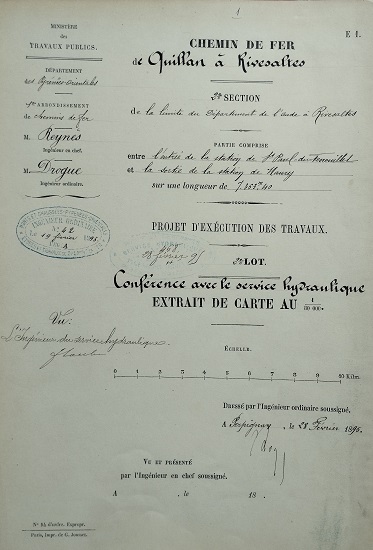 1
E 1.
MINISTÈRE
des
TRAVAUX PUBLICS.
DÉPARTEMENT
des Pyrénées-Orientales
1er ARRONDISSEMENT
de Chemins de fer
M. Reynès
Ingénieur en chef.
M. Drogue
Ingénieur ordinaire.
N° 42
Le 19 février 1895
A
CHEMIN DE FER
de Quillan à Rivesaltes
2e SECTION
de la limite du Département de l'Aude à Rivesaltes
PARTIE COMPRISE
entre l'entrée de la station de St Paul-de-Fenouillet
et la sortie de la station de Maury
sur une longueur de 7.353m40
PROJET D'EXÉCUTION DES TRAVAUX.
28 février 95
2e LOT.
Conférence avec le service hydraulique
EXTRAIT DE CARTE AU 1/80 000e
Vu:
L'Ingénieur du service hydraulique
ÉCHELLE.
0 1 2 3 4 5 6 7 8 9 10 Kilm.
DRESSÉ par l'Ingénieur ordinaire soussigné,
A Perpignan, le 28 Février 1895.
VU ET PRÉSENTÉ
par l'Ingénieur en chef soussigné.
A , le 18 .
Paris, Impr. de G. Jousset.